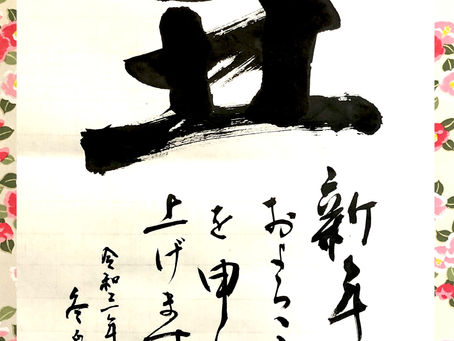 丑
新年
およろこ
を申し
上げます
令和三年